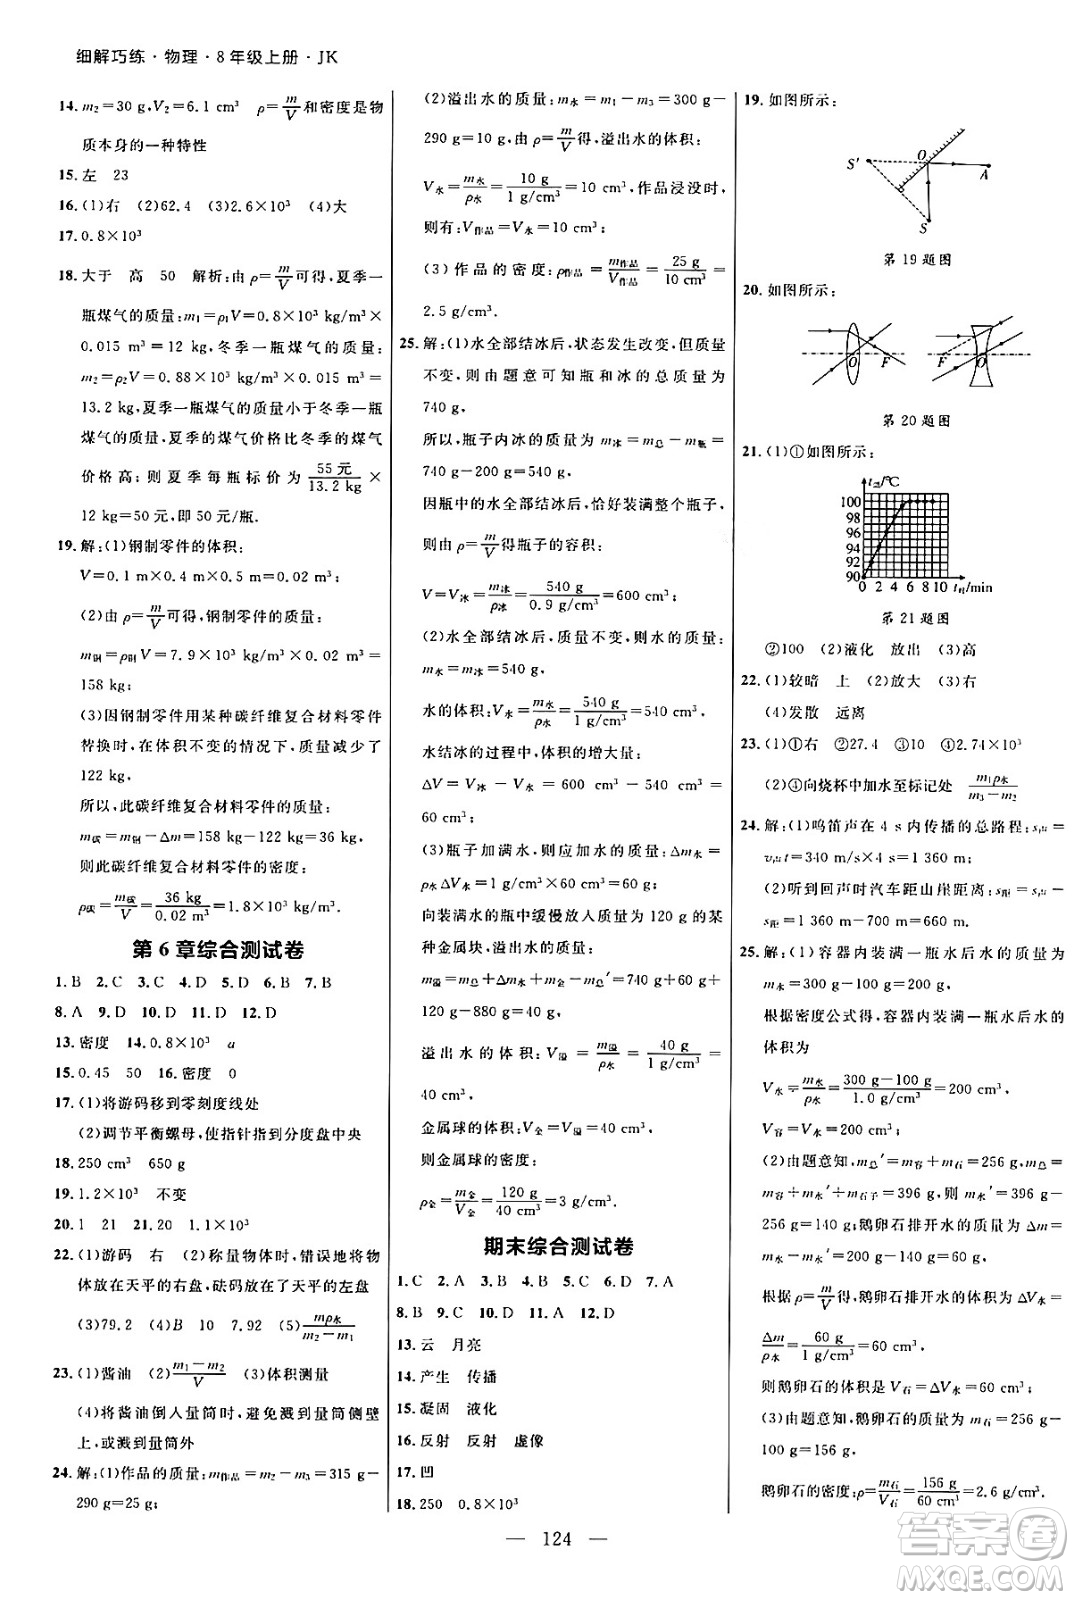 细解巧练·物理·8年级上册·JK
14. m₂=30 g,V₂=6.1 cm³ ρ=m/V和密度是物
质本身的一种特性
15. 左 23
16. (1)右 (2)62.4 (3)2.6×10³ (4)大
17. 0.8×10³
18. 大于 高 50 解析:由ρ=m/V可得,夏季一
瓶煤气的质量:m₁=ρ₁V=0.8×10³ kg/m³×
0.015 m³=12 kg,冬季一瓶煤气的质量:
m₂=ρ₂V=0.88×10³ kg/m³×0.015 m³=
13.2 kg,夏季一瓶煤气的质量小于冬季一瓶
煤气的质量,冬季的煤气价格比夏季的煤气
价格高;则夏季每瓶标价为55 元/13.2 kg×
12 kg=50元,即50元/瓶.
19. 解:(1)钢制零件的体积:
V=0.1 m×0.4 m×0.5 m=0.02 m³;
(2)由ρ=m/V可得,钢制零件的质量:
m钢=ρ钢V=7.9×10³ kg/m³×0.02 m³=
158 kg;
(3)因钢制零件用某种碳纤维复合材料零件
替换时,在体积不变的情况下,质量减少了
122 kg;
所以,此碳纤维复合材料零件的质量:
m碳=m钢-△m=158 kg-122 kg=36 kg;
则此碳纤维复合材料零件的密度:
ρ碳=m碳/V=36 kg/0.02 m³=1.8×10³ kg/m³.
第6章综合测试卷
1. B 2. C 3. C 4. D 5. D 6. B 7. B
8. A 9. D 10. D 11. D 12. D
13. 密度 14. 0.8×10³ a
15. 0.45 50 16. 密度 0
17. (1)将游码移到零刻度线处
(2)调节平衡螺母,使指针指到分度盘中央
18. 250 cm³ 650 g
19. 1.2×10³ 不变
20. 1 21 21. 20 1.1×10³
22. (1)游码 右 (2)称量物体时,错误地将物
体放在天平的右盘,砝码放在了天平的左盘
(3)79.2 (4)B 10 7.92 (5)mρ水/m₂-m₁
23. (1)酱油 (2)m₁-m₂/V (3)体积测量
(4)将酱油倒人量筒时,避免溅到量筒侧壁
上,或溅到量筒外
24. 解:(1)作品的质量:m作品=m₂-m₃=315 g-
290 g=25 g;
(2)溢出水的质量:m水=m₁-m₃=300 g-
290 g=10 g,由ρ=m/V得,溢出水的体积:
V水=m水/ρ水=10 g/1 g/cm³=10 cm³,作品浸没时,
则有:V作品=V水=10 cm³;
(3)作品的密度:ρ作品=m作品/V作品=25 g/10 cm³=
2.5 g/cm³.
25. 解:(1)水全部结冰后,状态发生改变,但质量
不变,则由题意可知瓶和冰的总质量为
740 g,
所以,瓶子内冰的质量为m冰=m总-m瓶=
740 g-200 g=540 g,
因瓶中的水全部结冰后,恰好装满整个瓶子,
则由ρ=m/V得瓶子的容积:
V=V冰=m冰/ρ冰=540 g/0.9 g/cm³=600 cm³;
(2)水全部结冰后,质量不变,则水的质量:
m水=m冰=540 g,
水的体积:V水=m水/ρ水=540 g/1 g/cm³=540 cm³,
水结冰的过程中,体积的增大量:
ΔV=V冰-V水=600 cm³-540 cm³=
60 cm³;
(3)瓶子加满水,则应加水的质量:Δm水=
ρ水ΔV水=1 g/cm³×60 cm³=60 g,
向装满水的瓶中缓慢放人质量为120 g的某
种金属块,溢出水的质量:
m溢=m总+Δm水+m金-m总′=740 g+60 g+
120 g-880 g=40 g,
溢出水的体积:V溢=m溢/ρ水=40 g/1 g/cm³=
40 cm³,
金属球的体积:V金=V溢=40 cm³,
则金属球的密度:
ρ金=m金/V金=120 g/40 cm³=3 g/cm³.
期末综合测试卷
1. C 2. A 3. B 4. B 5. C 6. D 7. A
8. B 9. C 10. D 11. A 12. D
13. 云 月亮
14. 产生 传播
15. 凝固 液化
16. 反射 反射 虚像
17. 凹
18. 250 0.8×10³
19. 如图所示:
S′ O A S
第19题图
20. 如图所示:
O F F O
第20题图
21. (1)①如图所示:
t温/℃
100
98
96
94
92
90
0 2 4 6 8 10 t时/min
第21题图
②100 (2)液化 放出 (3)高
22. (1)较暗 上 (2)放大 (3)右
(4)发散 远离
23. (1)①右 ②27.4 ③10 ④2.74×10³
(2)④向烧杯中加水至标记处 m₁ρ水/m₃-m₂
24. 解:(1)鸣笛声在4 s内传播的总路程:s声=
v声t=340 m/s×4 s=1 360 m;
(2)听到回声时汽车距山崖距离:s距=s声-
s路=1 360 m-700 m=660 m.
25. 解:(1)容器内装满一瓶水后水的质量为
m水=300 g-100 g=200 g,
根据密度公式得,容器内装满一瓶水后水的
体积为
V水=m水/ρ水=300 g-100 g/1.0 g/cm³=200 cm³,
V容=V水=200 cm³;
(2)由题意知,m总′=m水+m石=256 g,m总=
m水+m水′+m石子=396 g,则m水=396 g-
256 g=140 g,鹅卵石排开水的质量Δm=
m水-m水′=200 g-140 g=60 g,
根据ρ=m/V,鹅卵石排开水的体积为ΔV水=
Δm/ρ水=60 g/1 g/cm³=60 cm³,
则鹅卵石的体积是V石=ΔV水=60 cm³;
(3)由题意知,鹅卵石的质量为m石=256 g-
100 g=156 g,
鹅卵石的密度为m石/V石=156 g/60 cm³=2.6 g/cm³.
124
答案圈
MXQE.COM